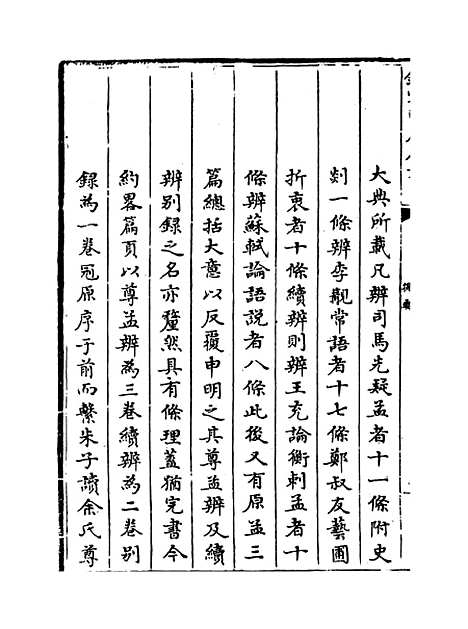 大典所載凡辨司馬先疑孟者十一條附史
剡一條辨李覯常語者十七條鄭叔友藝圃
折衷者十條續辨則辨王充論衡刺孟者十
條辨蘇軾論語説者八條此後又有原孟三
篇總括大意以反覆申明之其尊孟辨及續
辨别録之名亦釐然具有條理蓋猶完書今
約畧篇頁以尊孟辨為三卷續辨為二卷别
録為一卷冠原序于前而繫朱子讀余氏尊
提要